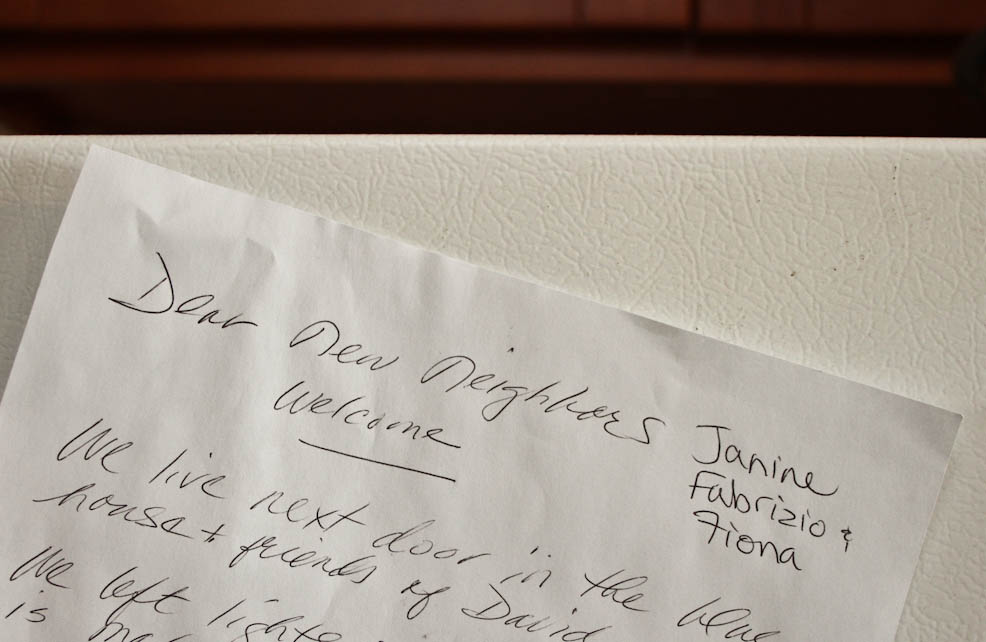 Dear new neighbors
Welcome
Janine
Fabrizio &
Fiona
We live next door in the blue
house + friends of David
We left
is